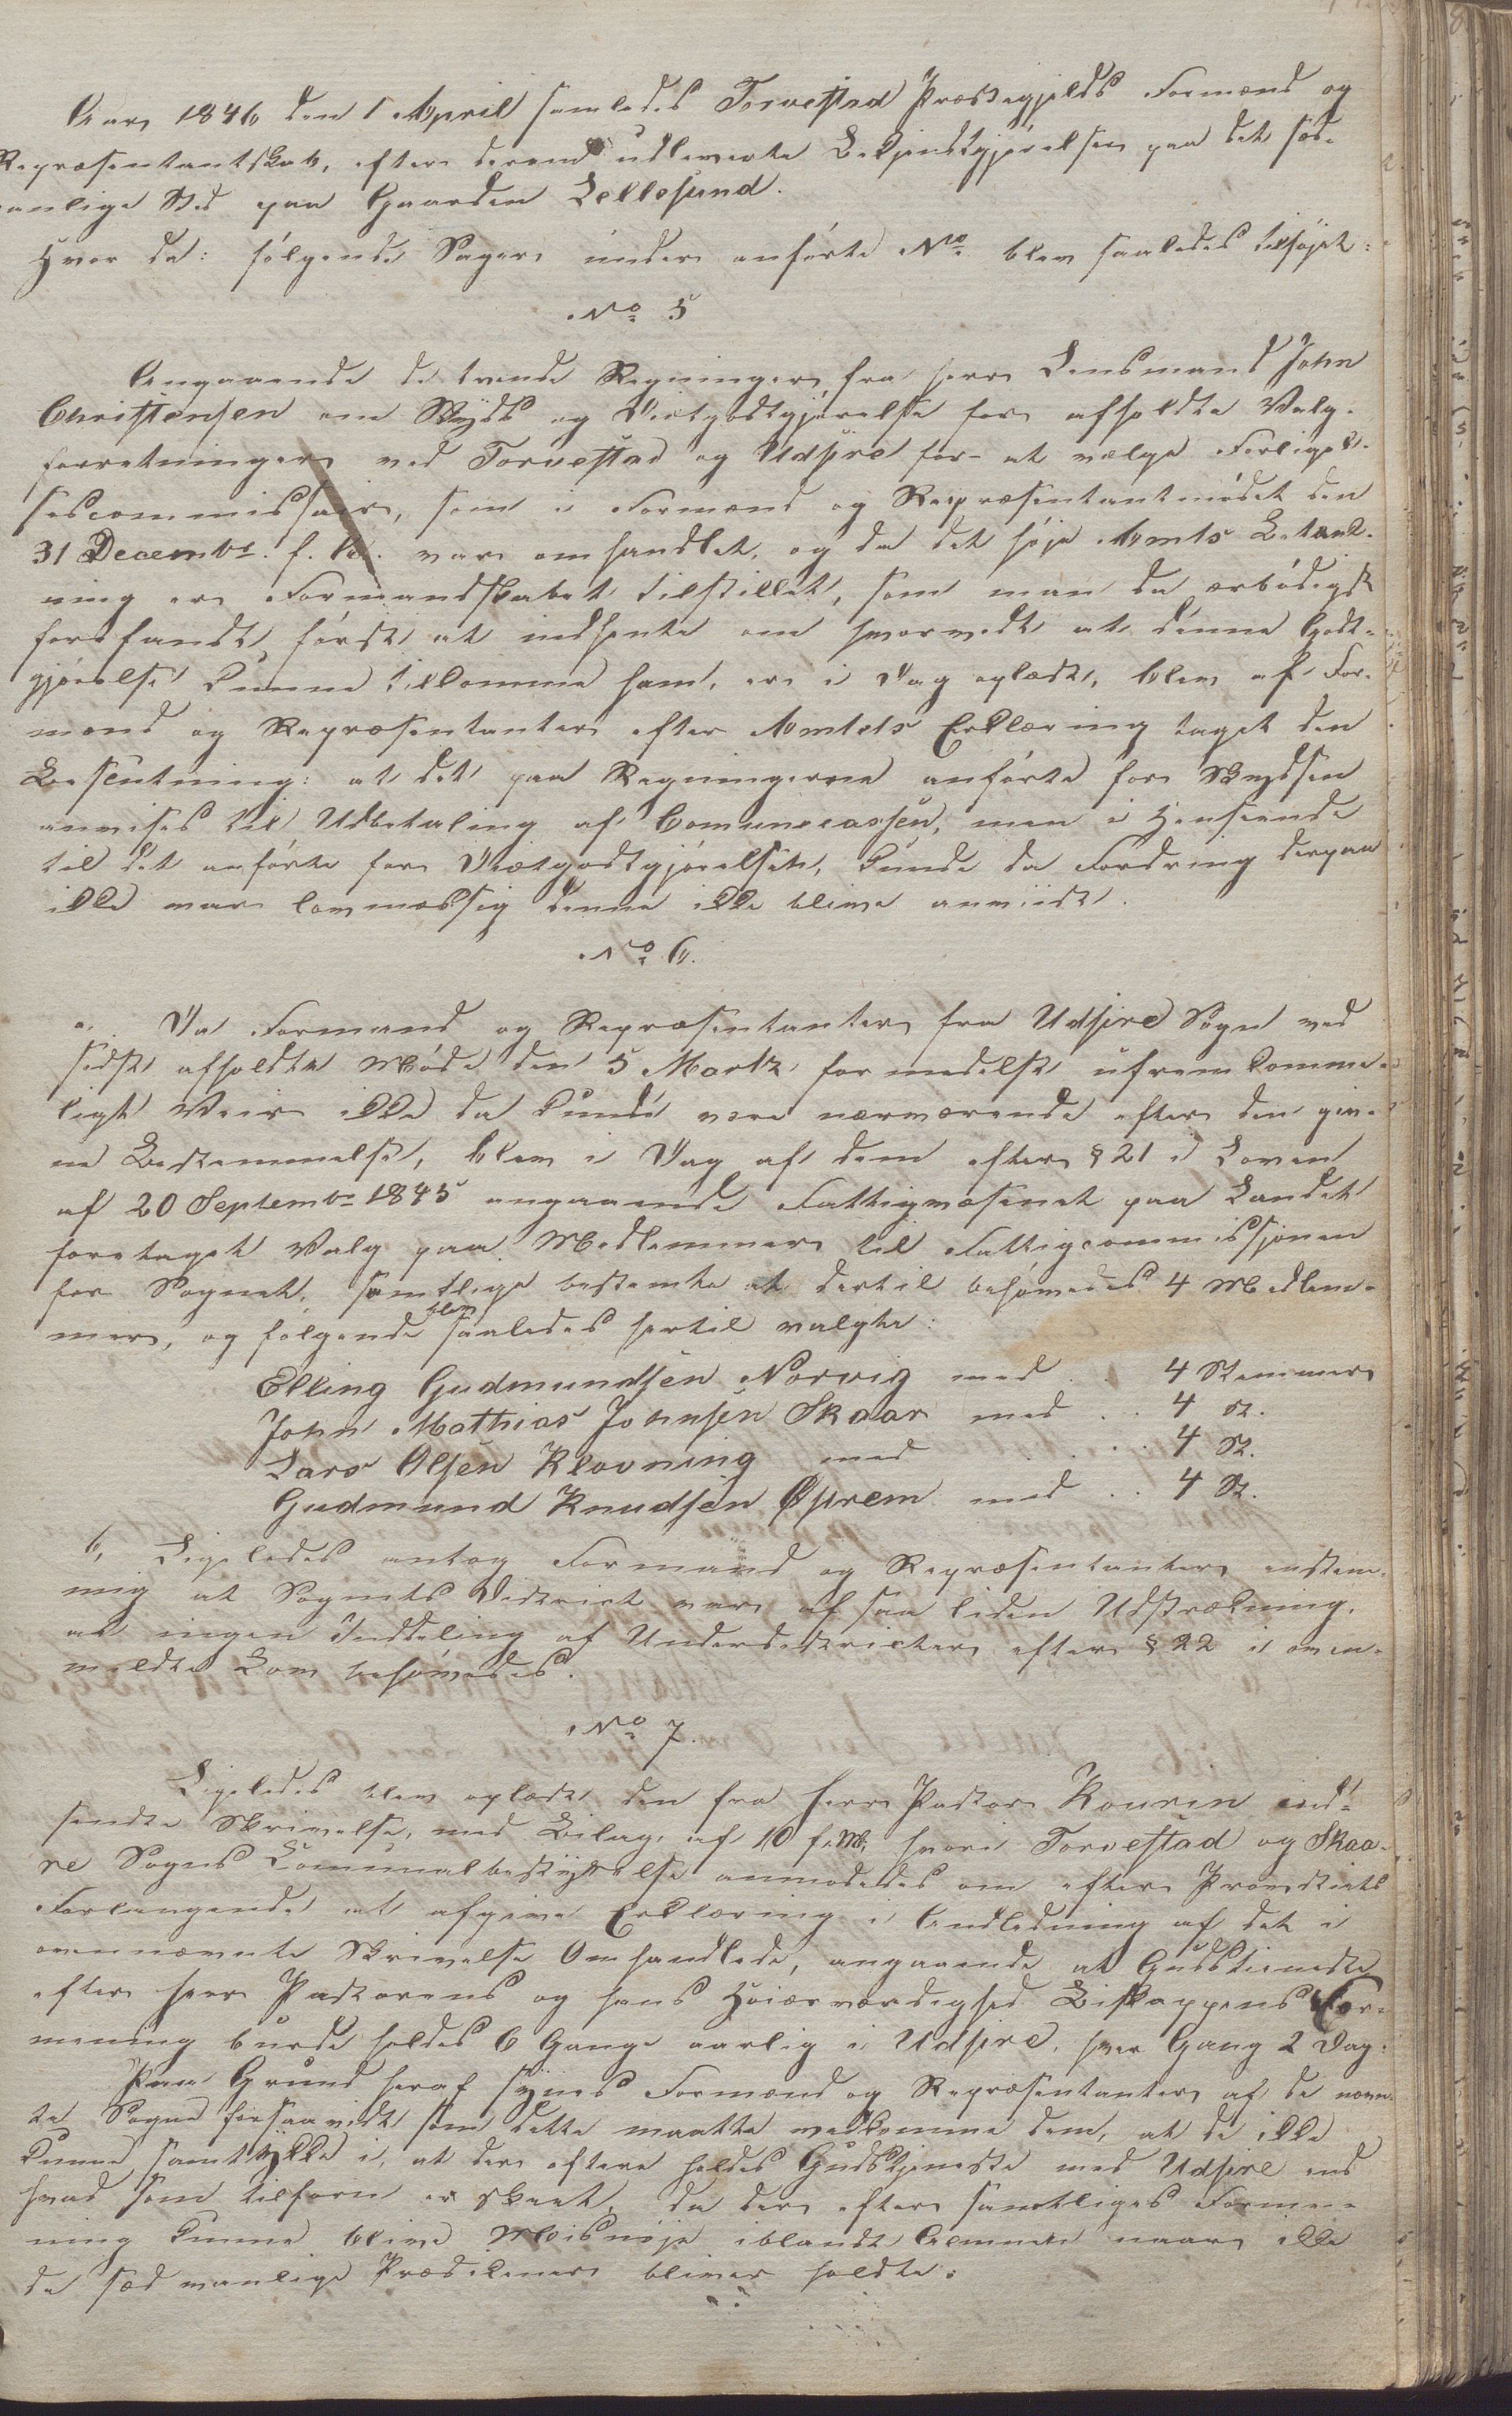 Aar 1846 den 1 April samledes Torvestad Præstegjelds Formænd og
Repræsentantskab, efter derom udleverte Bekjendtgjørelser paa det sæd-
vanlige Sted paa Gaarden Lellesund.
Hvor da: følgende Sager under anførte No blev saaledes tilføjet:
No 5
Angaaende de tvende Regninger fra Herr Lensmand John
Christensen om Skyds og Diætgodtgjørelse for afholdte Valg-
forretninger ved Torvestad og Udsire for at vælge Forligel-
sescommissair, som i Formænd og Repræsentantmødet den
31 Decembr. f. A. var omhandlet, og da det høje Amts Betænk-
ning er Formandskabet tilstillet, som man da ærbødigst
forefandt først at indhente om hvorvidt at denne Godt-
gjørelse kunne tilkomme ham, er i Dag oplæst, blev af For-
mænd og Repræsentanter efter Amtets Erklæring taget den
Beslutning: at det paa Regningerne anførte for Skydsen
anvises til Udbetaling af Comunecassen, men i Henseende
til det anførte for Diætgodtgjørelsen, kunde da Fordring derpaa
ikke var lovmæssig denne ikke blive anviist.
No 6.
a, Da Formænd og Repræsentanter fra Udsire Sogn ved
sidst afholdte Møde den 5 Martz formedelst ufremkomme-
ligt Veir ikke da kunde være nærværende efter den giv-
ne Bestemmelse, blev i Dag af dem efter § 21 i Loven
af 20 Septembr 1845 angaaende Fattigvæsenet paa Landet
foretaget Valg paa Medlemmer til Fattigcommissjonen
for Sognet, samtlige bestemte at dertil behøvedes 4 Medlem-
mer, og følgende blev saaledes hertil valgte:
Elling Gudmundsen Norvig med . . 4 Stemmer
John Mathias Johnsen Skaar med . . 4 St.
Lars Olsen Klovning med . . . 4 St.
Gudmund Knudsen Øsprem med . . 4 St.
b, Ligeledes antog Formænd og Repræsentanter enstem-
mig at Sognets District var af saa liden Udstrækning,
at ingen Inddeling af Underdistricter efter § 22 i oven-
meldte Lov behøvedes.
No 7.
Ligeledes blev oplæst den fra Herr Pastor Kouren ind-
sendte Skrivelse, med Bilag, af 10 f. M, hvori Torvestad og Skaa-
re Sogns Communalbestyrelse anmodedes om efter Provstiets
Forlangende at afgive Erklæring i Andledning af det i
ovennævnte Skrivelse Omhandlede, angaaende at Gudstieneste
efter Herr Pastorens og hans Høiærværdighed Biskoppens For-
mening burde holdes 6 Gange aarlig i Udsire, hver Gang 2 Dag.
Paa Grund heraf synes Formænd og Repræsentanter af de nævn-
te Sogne forsaavidt som dette maatte vedkomme dem, at de ikke
kunne samtykke i, at der oftere holdes Gudstjeneste ved Udsire end
hvad som tilforn er skeet, da der efter samtliges Forme-
ning kunne blive Misnøje iblandt Almuen naar ikke
de sædvanlige Prædikener bliver holdte.